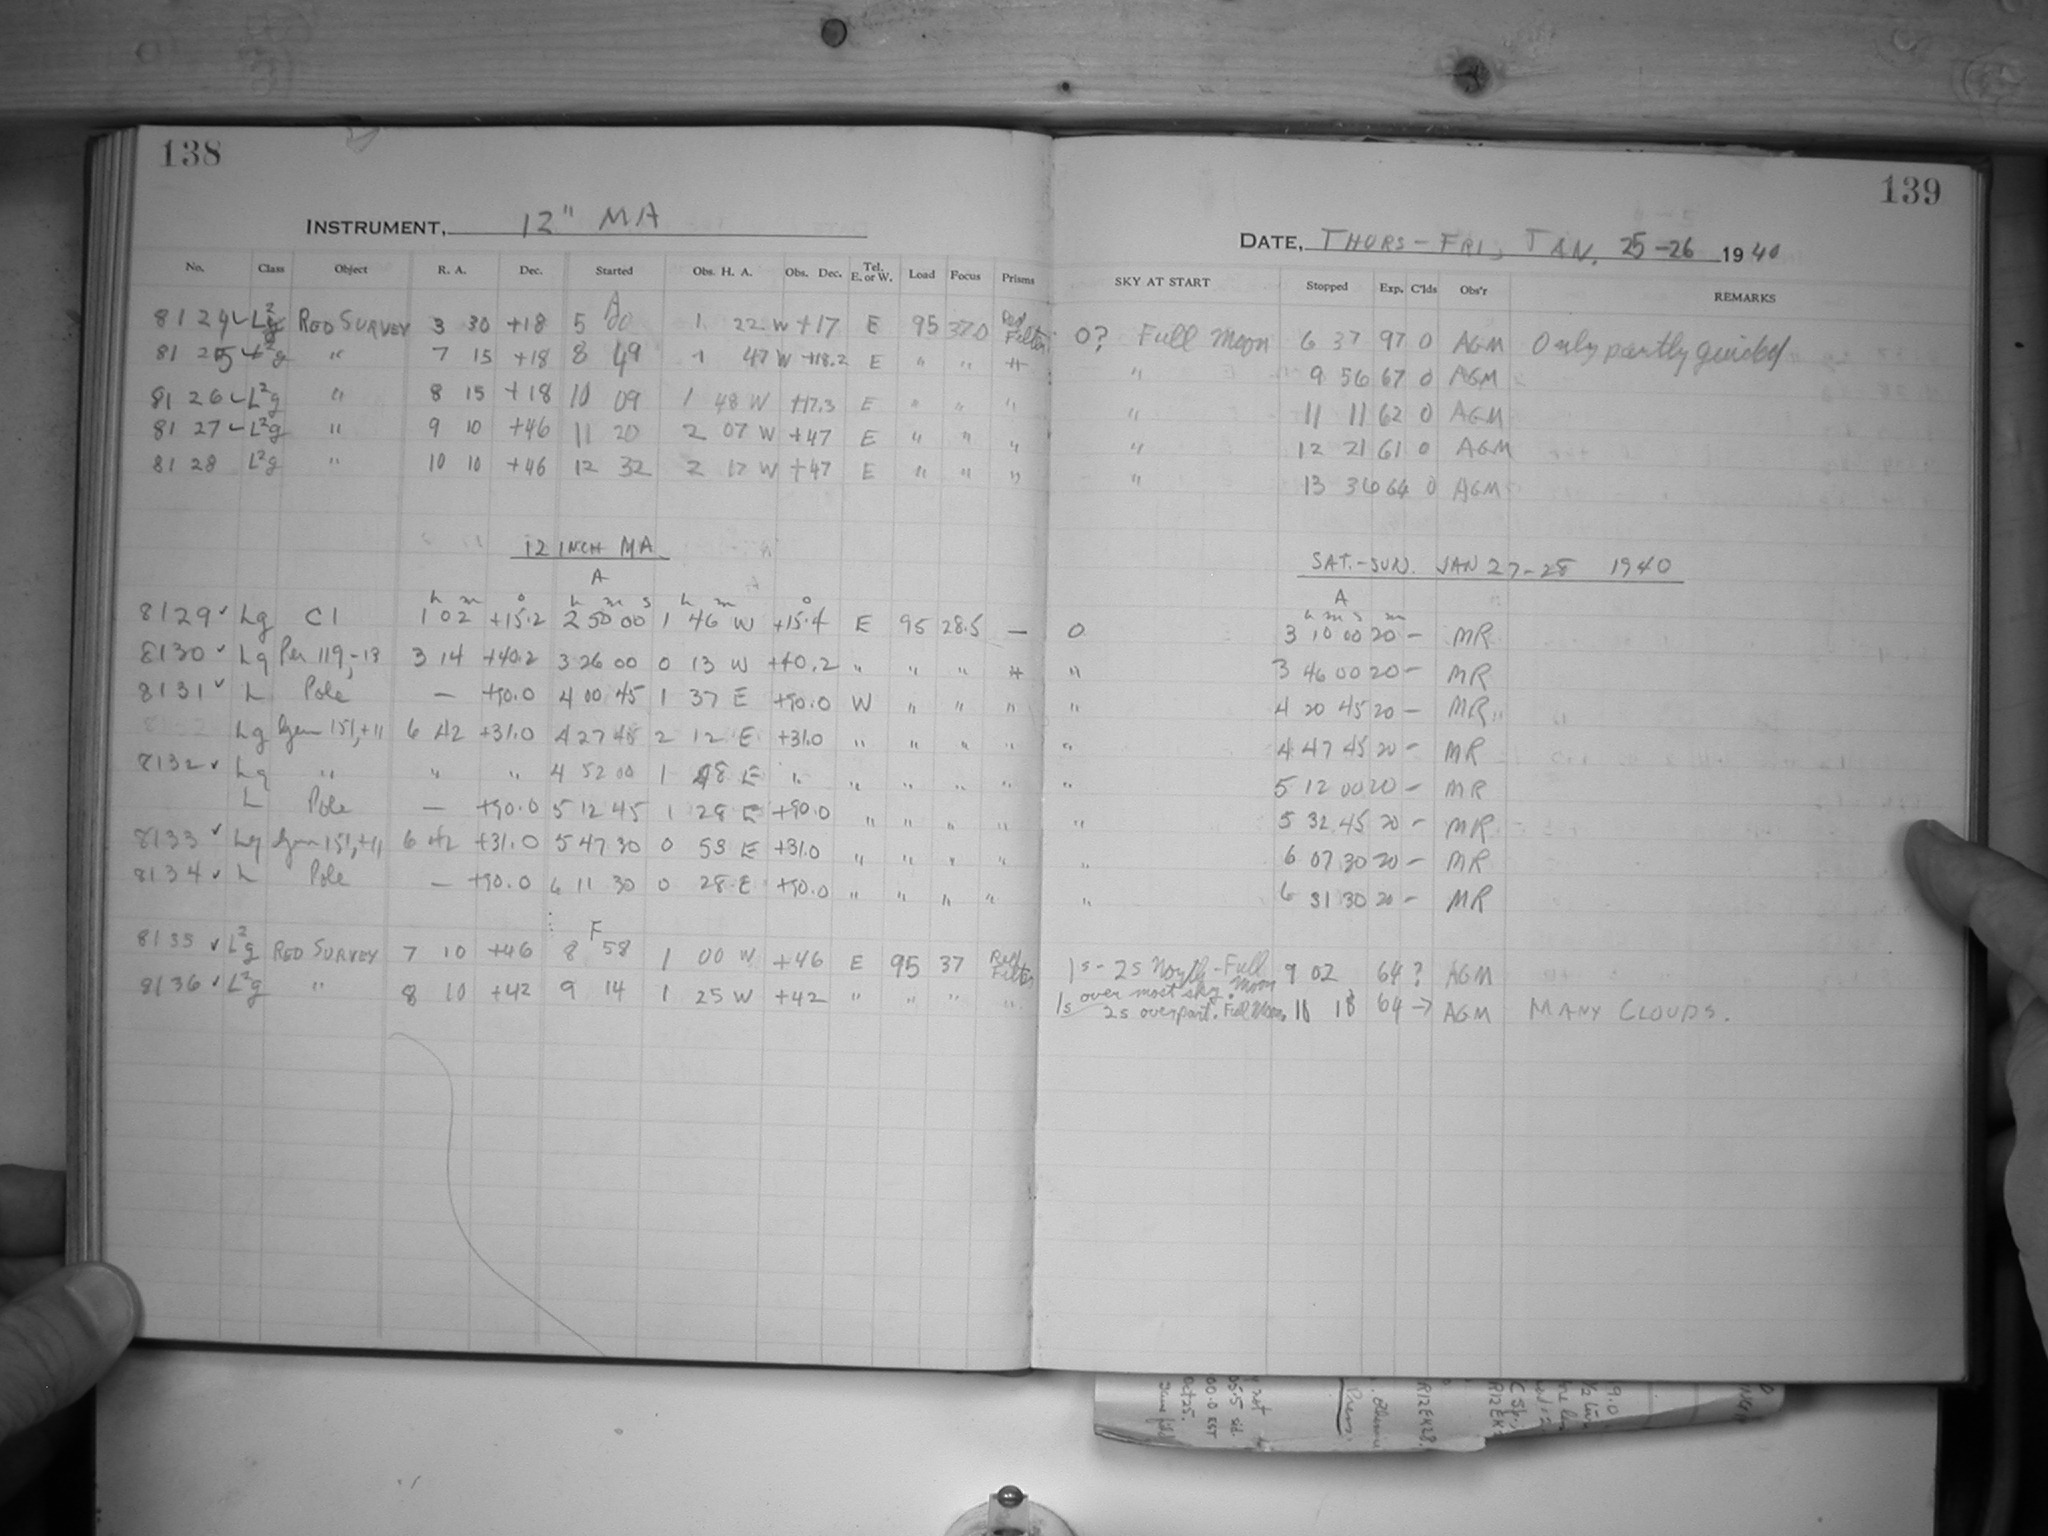 138
INSTRUMENT, 12" MA
No. Class Object R. A. Dec. Started Obs. H. A. Obs. Dec. Tel. E. or W. Load Focus Prisms
8124 RED SURVEY 3 30 +18 5 00 1 22 W +17 E 95 370 Red Filter
8125 " 7 15 +18 8 49 1 47 W +18.2 E " " "
8126 L²g " 8 15 +18 10 09 1 48 W +17.3 E " " "
8127 L²g " 9 10 +46 11 20 2 07 W +47 E " " "
8128 L²g " 10 10 +46 12 32 2 17 W +47 E " " "
12 INCH MA
A
h m ° h m s h m °
8129 ✓ Lg C1 1 02 +15.2 2 50 00 1 46 W +15.4 E 95 28.5 —
8130 ✓ Lg Per 119,-13 3 14 +40.2 3 26 00 0 13 W +40.2 " " " "
8131 ✓ L Pole — +90.0 4 00 45 1 37 E +90.0 W " " "
Lg Gem 151,+11 6 42 +31.0 4 27 45 2 12 E +31.0 " " " "
8132 ✓ Lg " " " 4 52 00 1 48 E " " " " "
L Pole — +90.0 5 12 45 1 28 E +90.0 " " " "
8133 ✓ Lg Gem 151,+11 6 42 +31.0 5 47 30 0 53 E +31.0 " " " "
8134 ✓ L Pole — +90.0 6 11 30 0 28 E +90.0 " " " "
F
8135 ✓ L²g RED SURVEY 7 10 +46 8 58 1 00 W +46 E 95 37 Red Filter
8136 ✓ L²g " 8 10 +42 9 14 1 25 W +42 " " " "
139
DATE, THURS-FRI, JAN. 25-26 1940
SKY AT START Stopped Exp. C'lds Obs'r REMARKS
0? Full Moon 6 37 97 0 AGM Only partly guided
" 9 56 67 0 AGM
" 11 11 62 0 AGM
" 12 21 61 0 AGM
" 13 36 64 0 AGM
SAT.-SUN. JAN 27-28 1940
A
h m s m
0 3 10 00 20 — MR
" 3 46 00 20 — MR
" 4 20 45 20 — MR
" 4 47 45 20 — MR
" 5 12 00 20 — MR
" 5 32 45 20 — MR
" 6 07 30 20 — MR
" 6 31 30 20 — MR
1s-2s North-Full Moon 9 02 64 ? AGM
1s over most sky.
2s over part. Full Moon. 18 64 → AGM MANY CLOUDS.